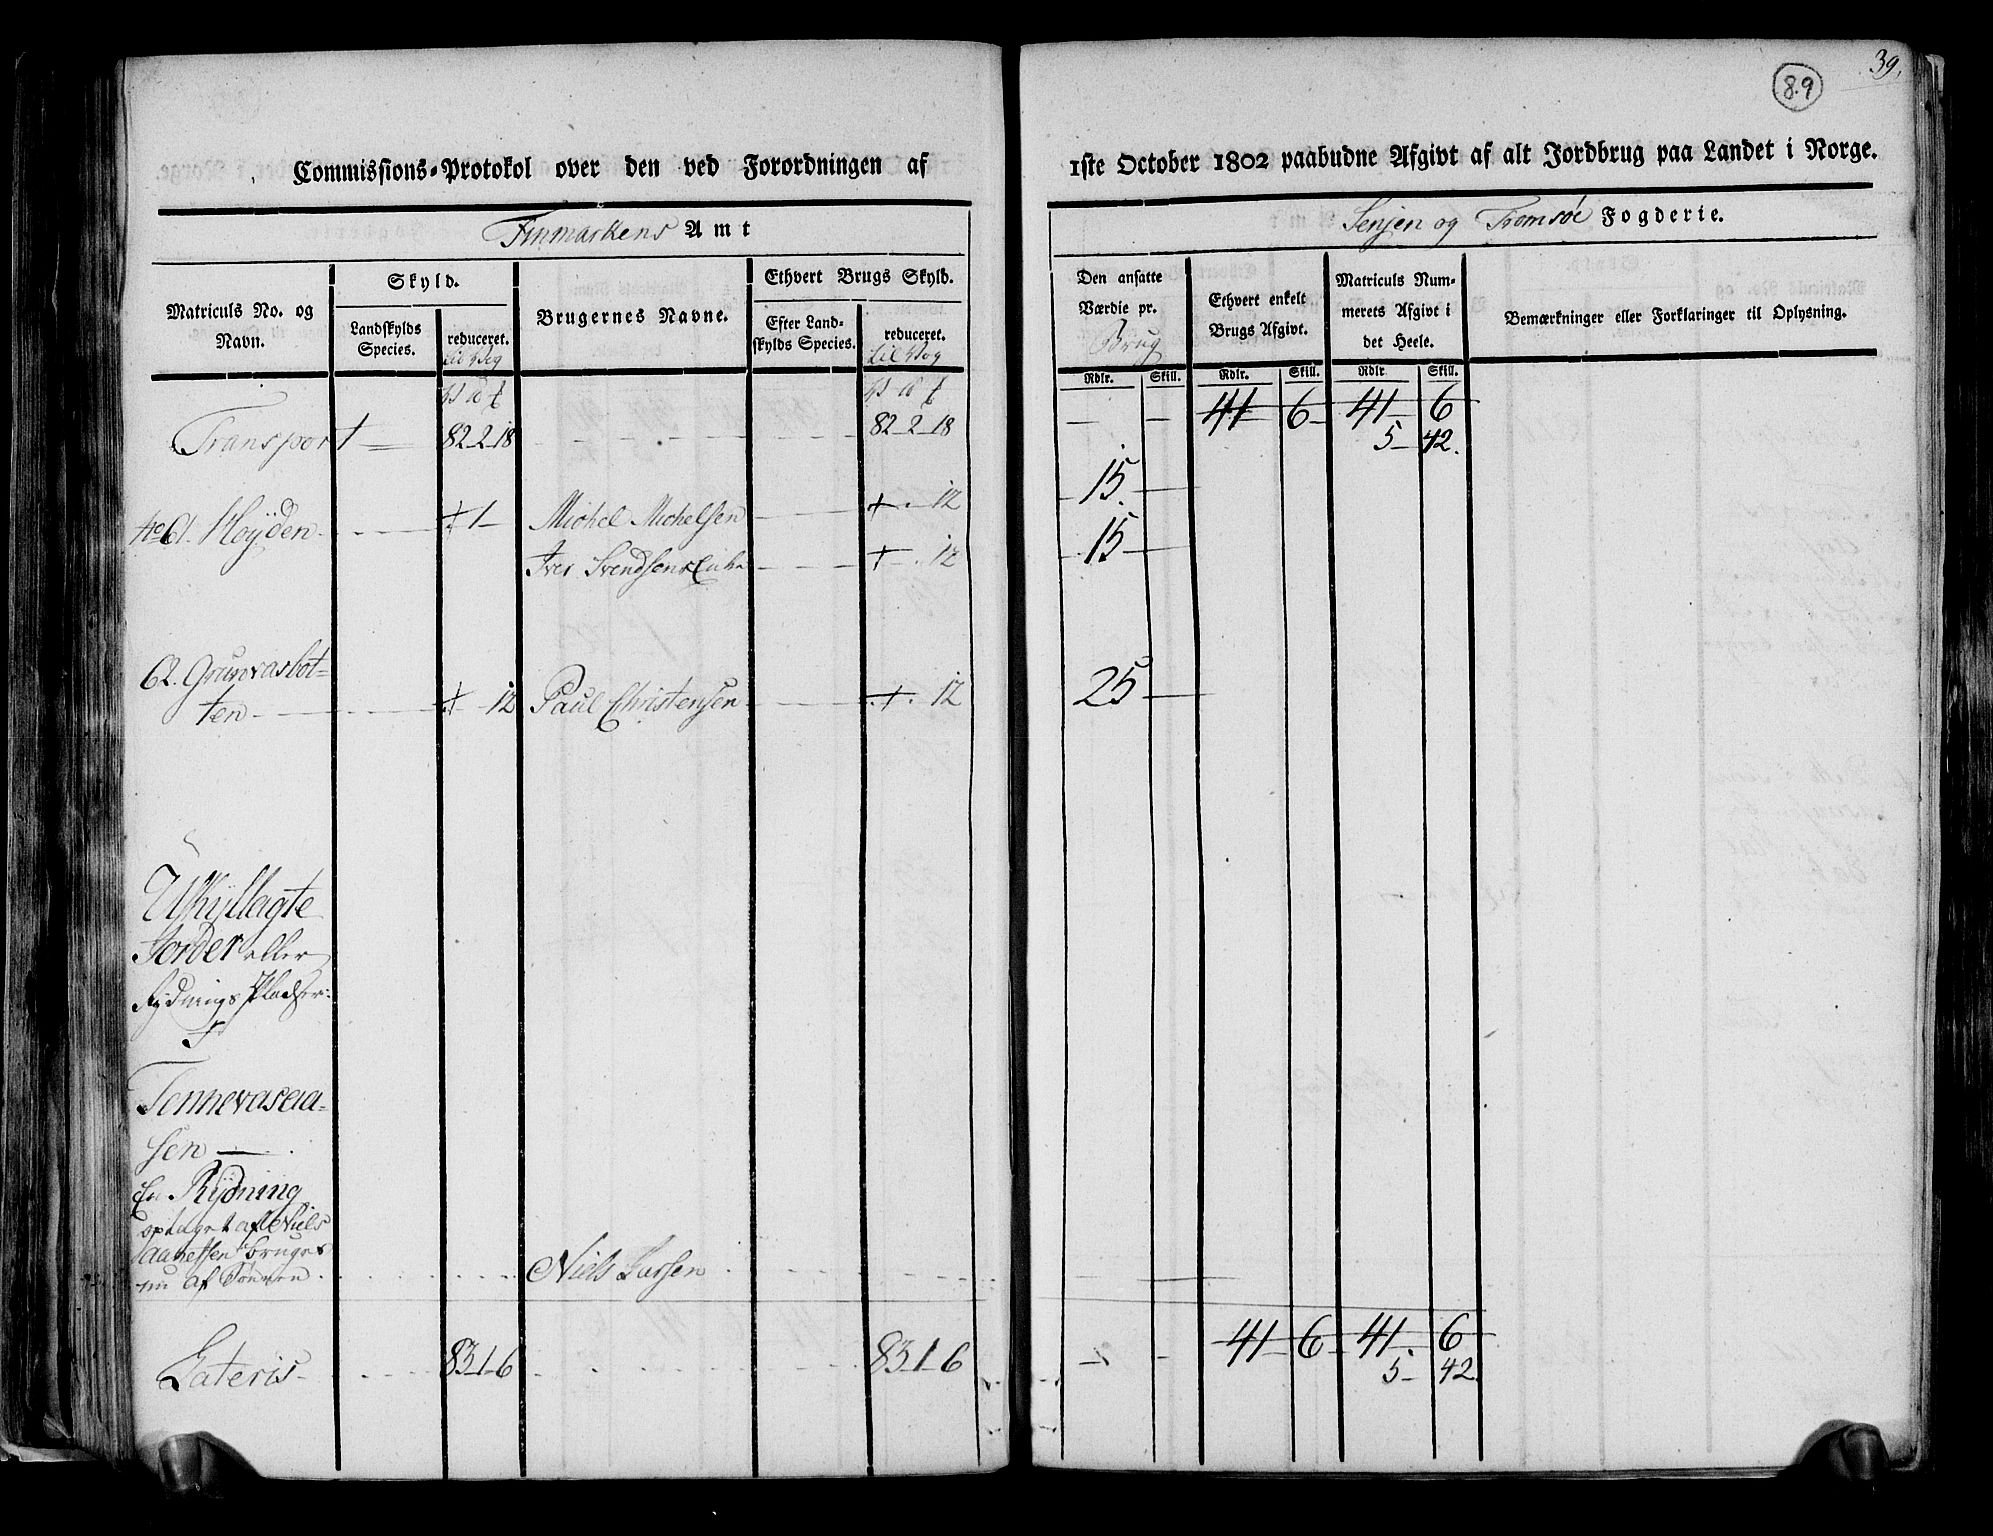 39.
89
Commissions-Protokol over den ved Forordningen af
1ste October 1802 paabudne Afgivt af alt Jordbrug paa Landet i Norge.
Finmarkens Amt
Senjen og Tromsöe Fogderie.
Matriculs No. og Navn.
Skyld.
Landskylds Species.
reduceret.
Brugernes Navne.
Ethvert Brugs Skyld.
Efter Landskylds Species.
reduceret.
Den ansatte Værdie pr.
Brug
Ethvert enkelt Brugs Afgivt.
Matriculs Nummerets Afgivt i det Heele.
Bemærkninger eller Forklaringer til Oplysning.
Rdlr. Skill. Rdlr. Skill. Rdlr. Skill.
Transport 82-2-18 82-2-18 41 6 41 6
5 42.
No 61. Höyden 1 Michel Michelsen 12 15
Iver Svendsens Enke 12 15
62. Grunvasbot-
ten 12 Paul Christensen 12 25
Uskyllagte
Jorder eller
Rydnings Pladser:
Tennevaseia-
sen
En Rydning
optaget af Niels
Aanessen bruges
nu af Sönnen Niels Larsen
Lateris 83-1-6 83-1-6 41 6 41 6
5 42